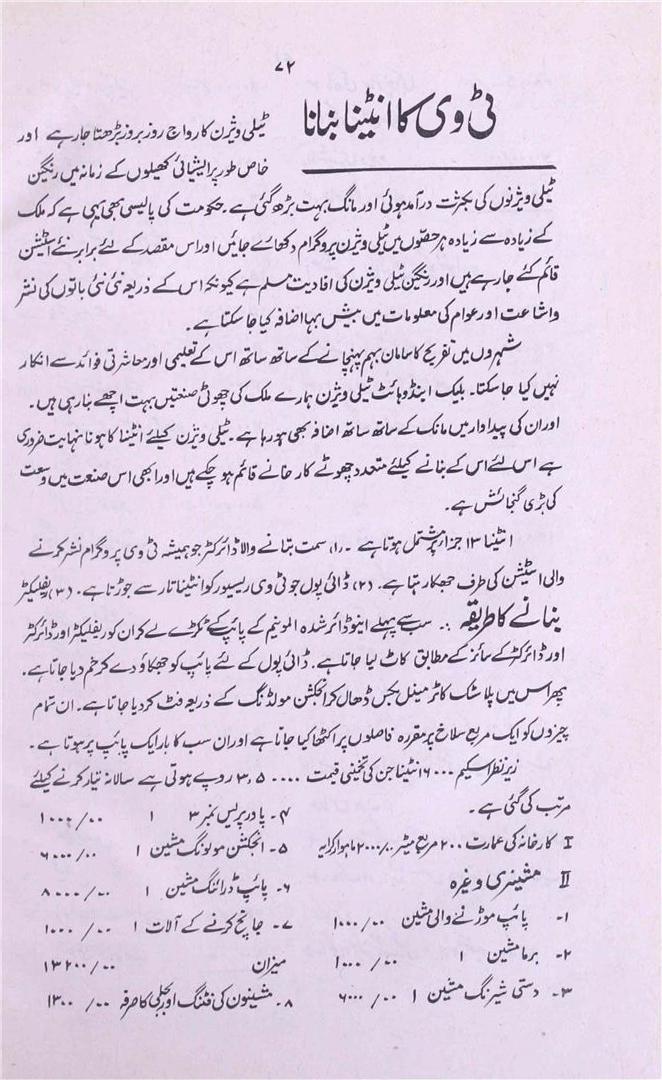 ۷۲
ٹی وی کا انٹینا بنانا
ٹیلی ویژن کا رواج روز بروز بڑھتا جا رہے اور
خاص طور پر ایشیائی کھیلوں کے زمانہ میں رنگین
ٹیلی ویژنوں کی بکثرت درآمد ہوئی اور مانگ بہت بڑھ گئی ہے۔ حکومت کی پالیسی بھی یہی ہے کہ ملک
کے زیادہ سے زیادہ ہر حصّوں میں ٹیلی ویژن پروگرام دکھائے جائیں اور اس مقصد کے لئے برابر نئے اسٹیشن
قائم کئے جا رہے ہیں اور رنگین ٹیلی ویژن کی افادیت مسلم ہے کیونکہ اس کے ذریعہ نئی نئی باتوں کی نشر
و اشاعت اور عوام کی معلومات میں بیش بہا اضافہ کیا جا سکتا ہے۔
شہروں میں تفریح کا سامان بہم پہنچانے کے ساتھ ساتھ اس کے تعلیمی اور معاشرتی فوائد سے انکار
نہیں کیا جا سکتا۔ بلیک اینڈ وہائٹ ٹیلی ویژن ہمارے ملک کی چھوٹی صنعتیں بہت اچھے بنا رہی ہیں۔
اور ان کی پیداوار میں مانگ کے ساتھ ساتھ اضافہ بھی ہو رہا ہے۔ ٹیلی ویژن کیلئے انٹینا کا ہونا نہایت ضروری
ہے اس لئے اس کے بنانے کیلئے متعدد چھوٹے کارخانے قائم ہو چکے ہیں اور ابھی اس صنعت میں وسعت
کی بڑی گنجائش ہے۔
انٹینا ۱۳ جزا پر مشتمل ہوتا ہے ۔ (۱) سمت بتانے والا ڈائرکٹر جو ہمیشہ ٹی وی پروگرام نشر کرنے
والی اسٹیشن کی طرف جھکا رہتا ہے۔ (۲) ڈائی پول جو ٹی وی ریسیور کو انٹینا تار سے جوڑتا ہے۔ (۳) ریفلیکٹر
بنانے کا طریقہ :۔ سب سے پہلے اینوڈائرشدہ المونیم کے پائپ کے ٹکڑے لے کر ان کو ریفلیکٹر اور ڈائرکٹر
اور ڈائرکٹر کے سائز کے مطابق کاٹ لیا جاتا ہے۔ ڈائی پول کے لئے پائپ کو جھکاؤ دے کر خم دیا جاتا ہے۔
پھر اس میں پلاسٹک کا ٹرمینل بکس ڈھال کر انجکشن مولڈنگ کے ذریعہ فٹ کر دیا جاتا ہے۔ ان تمام
چیزوں کو ایک مربع سلاخ پر مقررہ فاصلوں پر اکٹھا کیا جاتا ہے اور ان سب کا بار ایک پائپ پر ہوتا ہے۔
زیر نظر اسکیم ۶۰۰۰ انٹینا جن کی تخمینی قیمت ۳٫۵۰۰۰۰ روپے ہوتی ہے سالانہ تیار کرنے کیلئے
مرتب کی گئی ہے۔
I کارخانہ کی عمارت ۲۰۰ مربع میٹر ۲۰۰۰/۰۰ ماہوار کرایہ
II مشینری وغیرہ
۱۔ پائپ موڑنے والی مشین ۱۰۰۰/۰۰
۲۔ برما مشین ۱ ۱۰۰۰/۰۰
۳۔ دستی شیرنگ مشین ۱ ۶۰۰۰/۰۰
۴۔ پاور پریس نمبر ۳ ۱ ۱۰۰۰۰/۰۰
۵۔ انجکشن مولونگ مشین ۱ ۶۰۰۰/۰۰
۶۔ پائپ ڈرائنگ مشین ۱ ۸۰۰۰/۰۰
۷۔ جانچ کرنے کے آلات ۱ ۱۰۰۰/۰۰
میزان ۱۳۲۰۰/۰۰
۸۔ مشینوں کی فٹنگ اور بجلی کا صرفہ ۱۳۰۰/۰۰